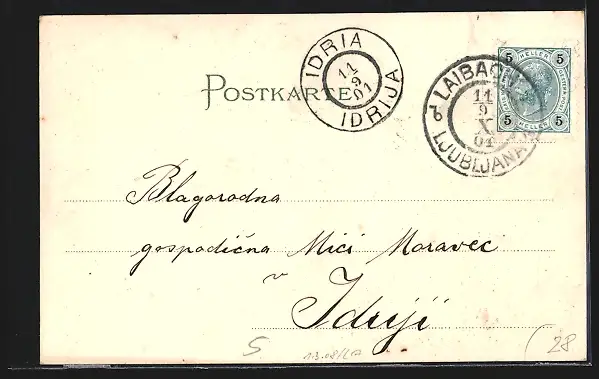 IDRIA
11
9
01
IDRIJA
POSTKARTE
LAIBACH
11
9
X
01
LJUBLJANA
5 HELLER 5
5 HELLER 5
Blagorodna
gospodična Mici Moravec
v
Idriji
5
28